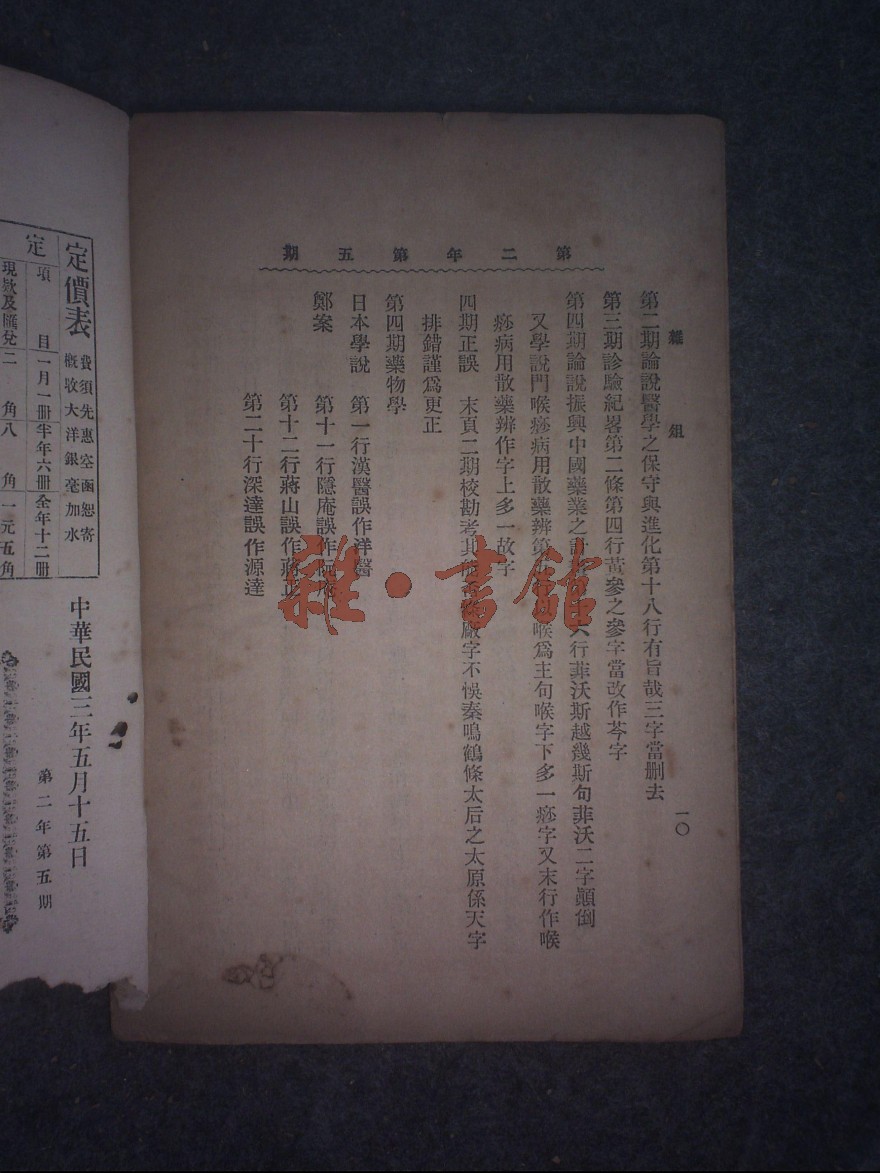 第二年第五期
雜俎
一〇
第二期論說醫學之保守與進化第十八行有旨哉三字當删去
第三期診驗紀畧第二條第四行黃參之參字當改作芩字
第四期論說振興中國藥業之計 六行菲沃斯越幾斯句菲沃二字顚倒
又學說門喉痧病用散藥辨第 喉爲主句喉字下多一痧字又末行作喉
痧病用散藥辨作字上多一故字
四期正誤 末頁二期校勘考其 廠字不悞秦鳴鶴條太后之太原係天字
排錯謹爲更正
第四期藥物學
日本學說 第一行漢醫誤作洋醫
鄭案 第十一行隱庵誤作 庵
第十二行蔣山誤作蔣
第二十行深達誤作源達
雜·書館
定價表
費須先惠空函恕寄
概收大洋銀毫加水
定
項目
一月一册
半年六册
全年十二册
現欵及匯兌
二角
八角
一元五角
中華民國三年五月十五日
第二年第五期